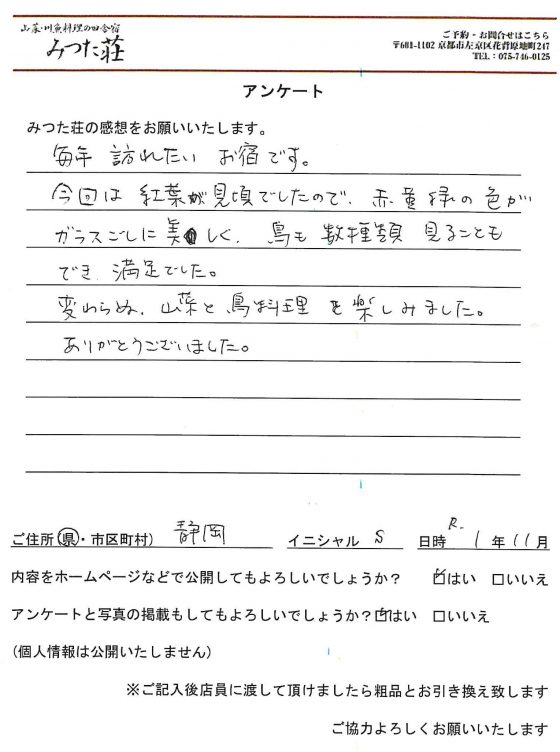 山菜・川魚料理の田舎宿
みつた荘
ご予約・お問合せはこちら
〒601-1102 京都市左京区花背原地町247
TEL：075-746-0125
アンケート
みつた荘の感想をお願いいたします。
毎年 訪れたい お宿です。
今回は 紅葉が見頃でしたので、赤黄緑の色が
ガラスごしに美しく、鳥も数種類 見ることも
でき 満足でした。
変わらぬ、山菜と鳥料理を楽しみました。
ありがとうございました。
ご住所(県・市区町村) 静岡 イニシャル S 日時 R. 1 年 11月
内容をホームページなどで公開してもよろしいでしょうか？ ☑はい □いいえ
アンケートと写真の掲載もしてもよろしいでしょうか？☑はい □いいえ
(個人情報は公開いたしません)
※ご記入後店員に渡して頂けましたら粗品とお引き換え致します
ご協力よろしくお願いいたします